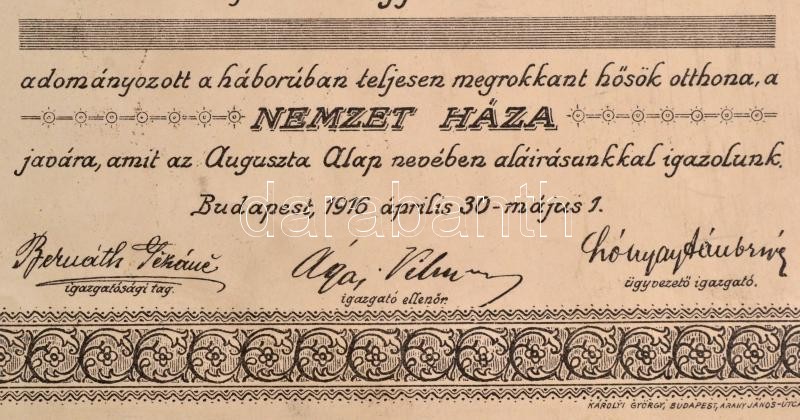 adományozott a háborúban teljesen megrokkant hősök otthona, a
NEMZET HÁZA
javára, amit az Auguszta Alap nevében aláirásunkkal igazolunk.
Budapest, 1916 április 30-május 1.
darabanth
Bernáth
igazgatósági tag.
Ágai Vilmos
igazgató ellenőr.
Lónyay Sándorné
ügyvezető igazgató.
KÁROLYI GYÖRGY, BUDAPEST, ARANY JÁNOS-UTCA